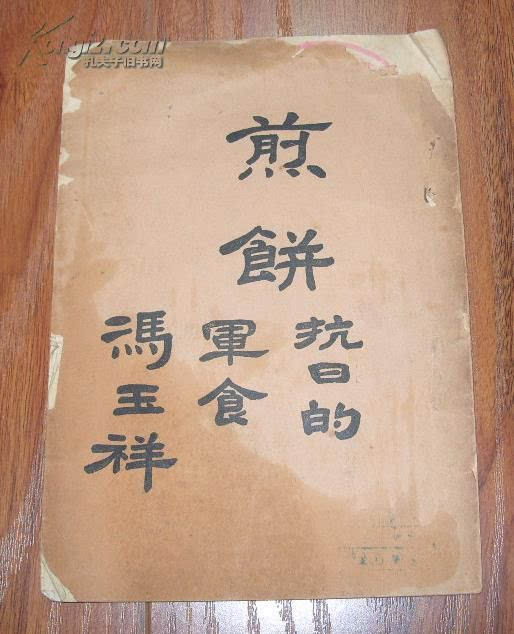 Kongfz.com
孔夫子旧书网
煎
餅
抗日的
軍食
馮玉祥